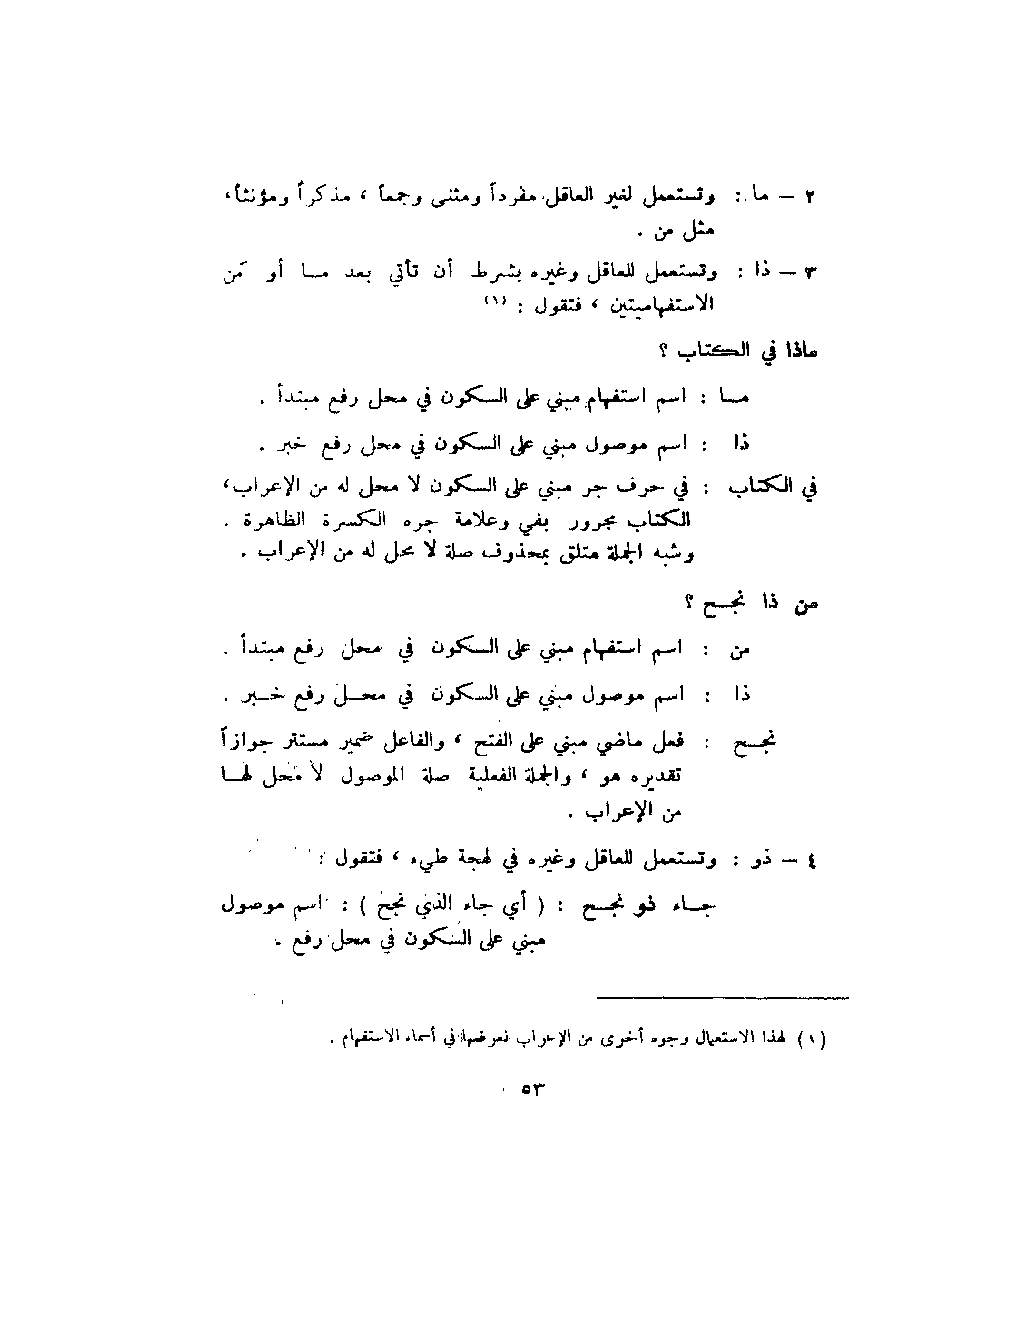 ٢ — ما : وتستعمل لغير العاقل مفرداً ومثنى وجمعاً ، مذكراً ومؤنثاً،
مثل من .
٣ — ذا : وتستعمل للعاقل وغيره بشرط أن تأتي بعد مـا أو مَن
الاستفهاميتين ، فتقول : (١)
ماذا في الكتاب ؟
مـا : اسم استفهام مبني على السكون في محل رفع مبتدأ .
ذا : اسم موصول مبني على السكون في محل رفع خبر .
في الكتاب : في حرف جر مبني على السكون لا محل له من الإعراب،
الكتاب مجرور بفي وعلامة جره الكسرة الظاهرة .
وشبه الجملة متلق بمحذوف صلة لا محل له من الإعراب .
من ذا نجـح ؟
من : اسم استفهام مبني على السكون في محل رفع مبتدأ .
ذا : اسم موصول مبني على السكون في محـل رفع خـبر .
نجـح : فعل ماضي مبني على الفتح ، والفاعل ضمير مستتر جوازاً
تقديره هو ، والجملة الفعلية صلة الموصول لا محل لهـا
من الإعراب .
٤ — ذو : وتستعمل للعاقل وغيره في لهجة طيء ، فتقول :
جـاء ذو نجـح : ( أي جاء الذي نجح ) : اسم موصول
مبني على السكون في محل رفع .
(١) لهذا الاستعمال وجوه أخرى من الإعراب نعرضها في أسماء الاستفهام .
٥٣